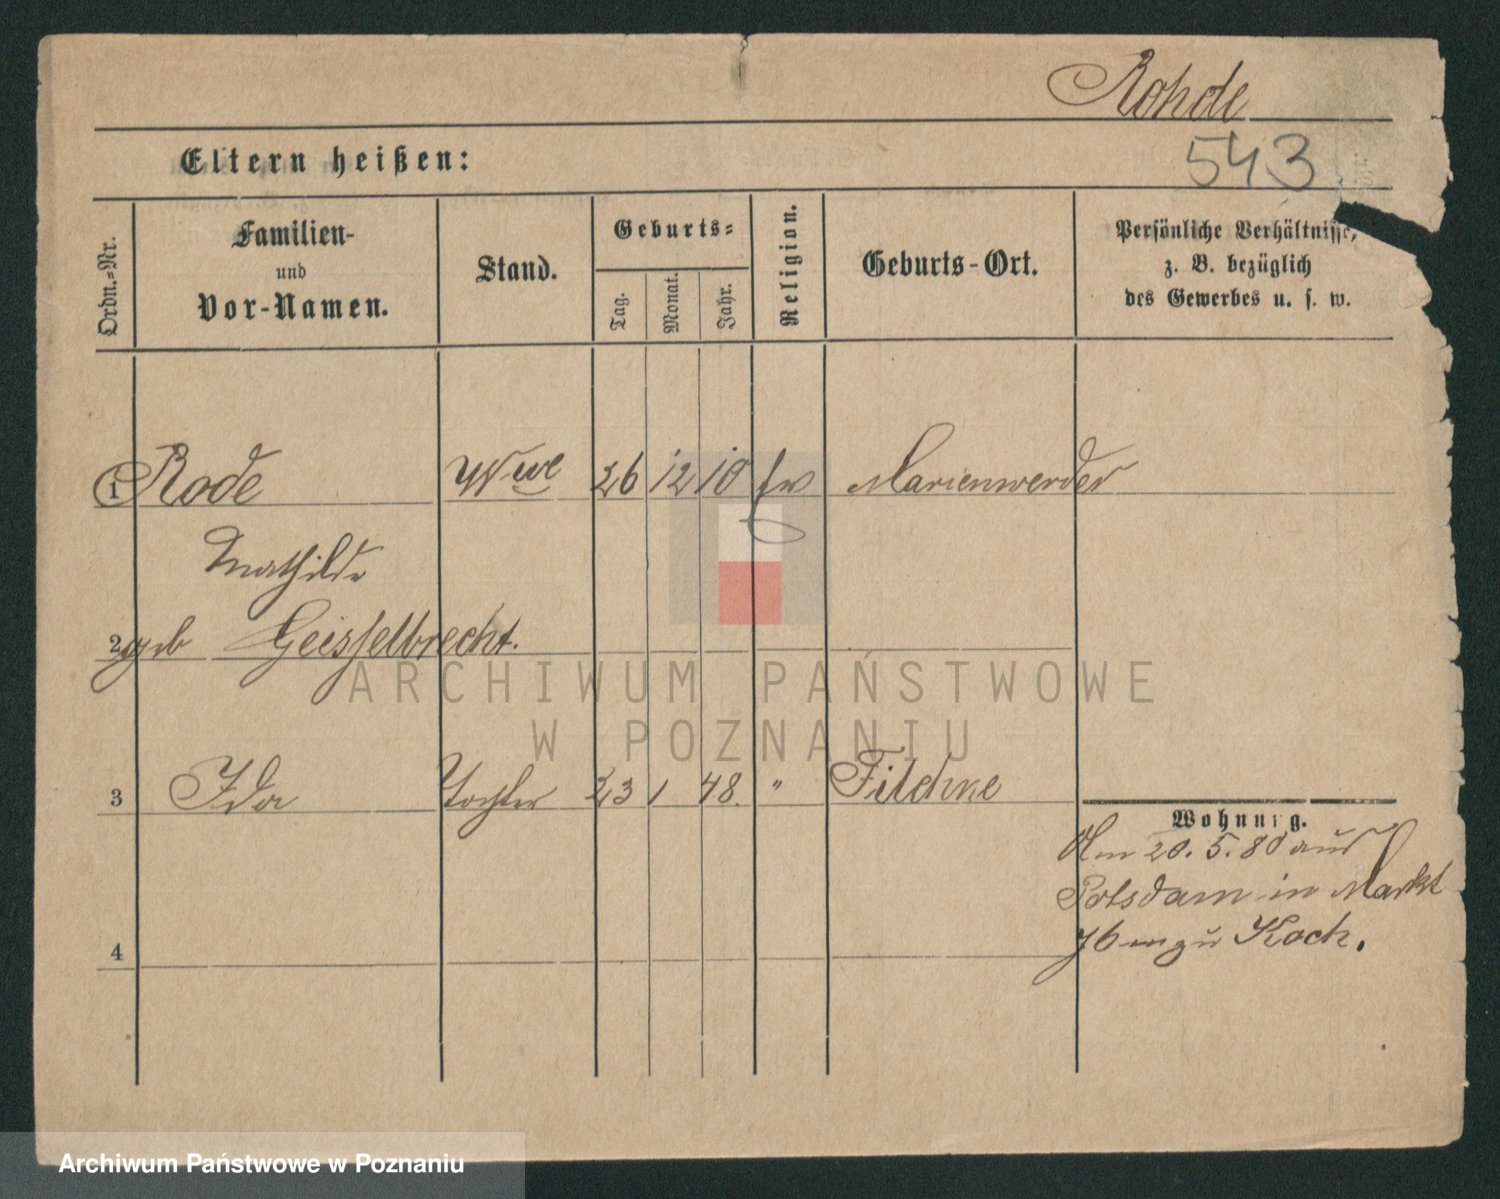 Rohde
543
Eltern heißen:
Ordn.-Nr.
Familien-
und
Vor-Namen.
Stand.
Geburts-
Tag.
Monat.
Jahr.
Religion.
Geburts-Ort.
Persönliche Verhältnisse,
z. B. bezüglich
des Gewerbes u. s. w.
1 Rode Wwe 26 12 10 Marienwerder
Mathilde
2 geb Geisselbrecht.
ARCHIWUM PAŃSTWOWE
W POZNANIU
3 Ida Tochter 23 1 48. " Filehne
Wohnung.
Am 20. 5. 80 aus
Potsdam in Markt
zu Koch.
4
Archiwum Państwowe w Poznaniu